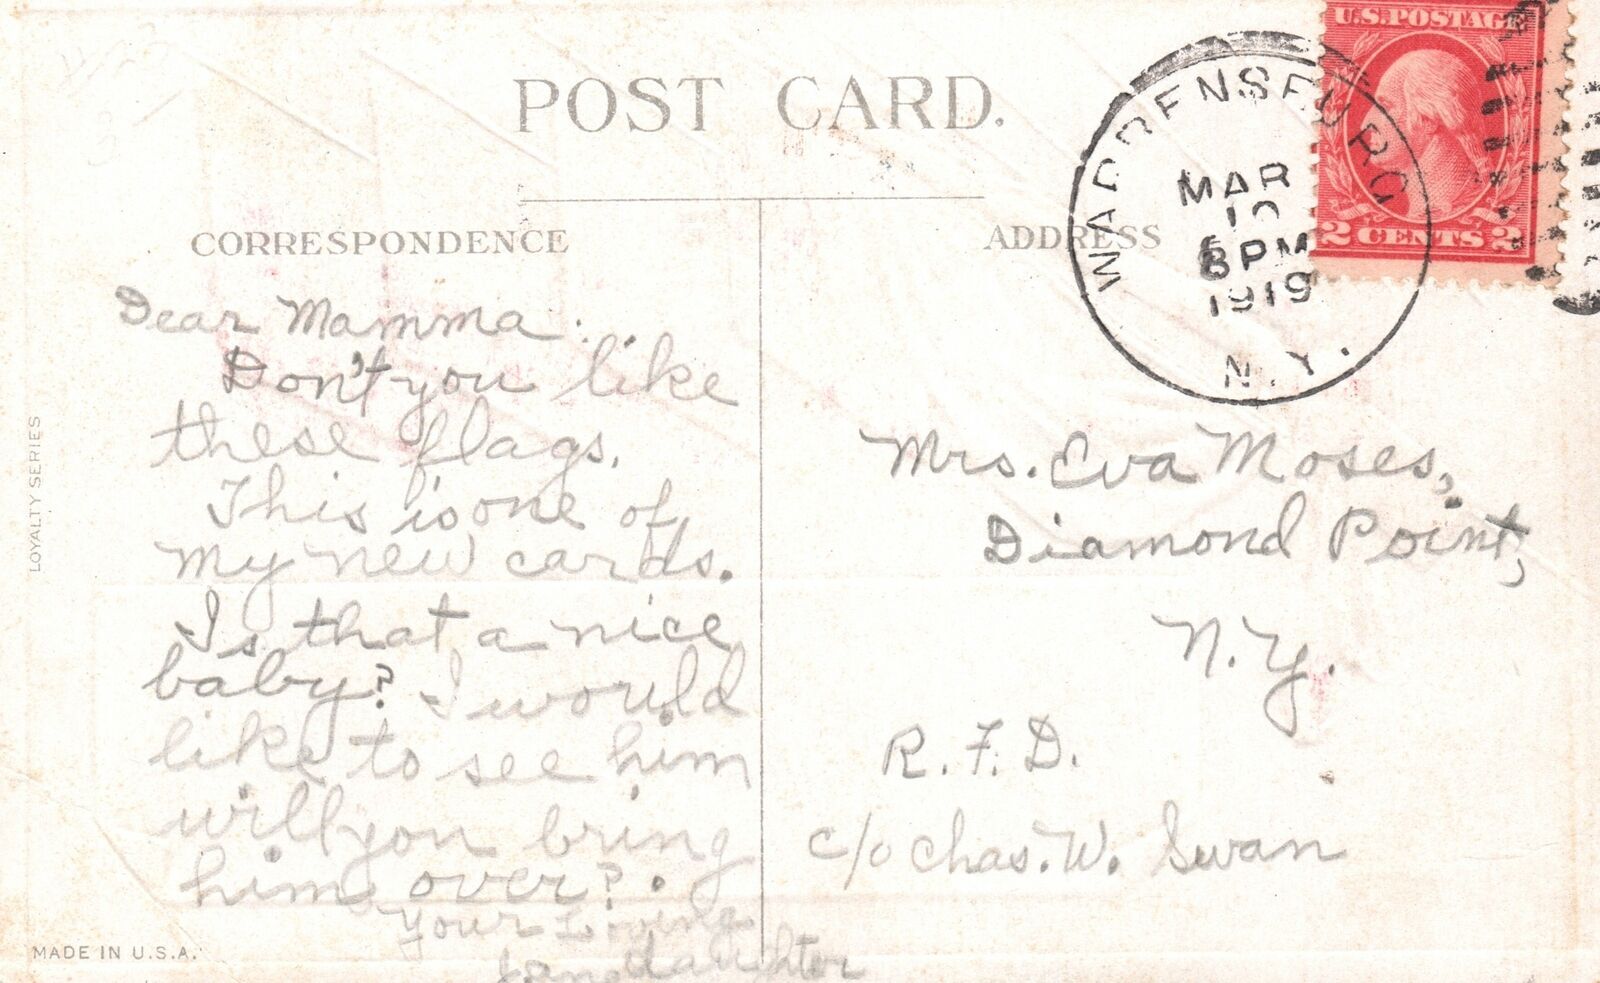 POST CARD.
CORRESPONDENCE
ADDRESS
U.S. POSTAGE
2 CENTS 2
WARRENSBURG
MAR
10
8 PM
1919
N.Y.
Dear Mamma:
Don't you like
these flags.
This is one of
my new cards.
Is that a nice
baby? I would
like to see him
will you bring
him over?.
Your Loving
daughter
Mrs. Eva Moses,
Diamond Point,
N.Y.
R.F.D.
c/o Chas. W. Swan
LOYALTY SERIES
MADE IN U.S.A.